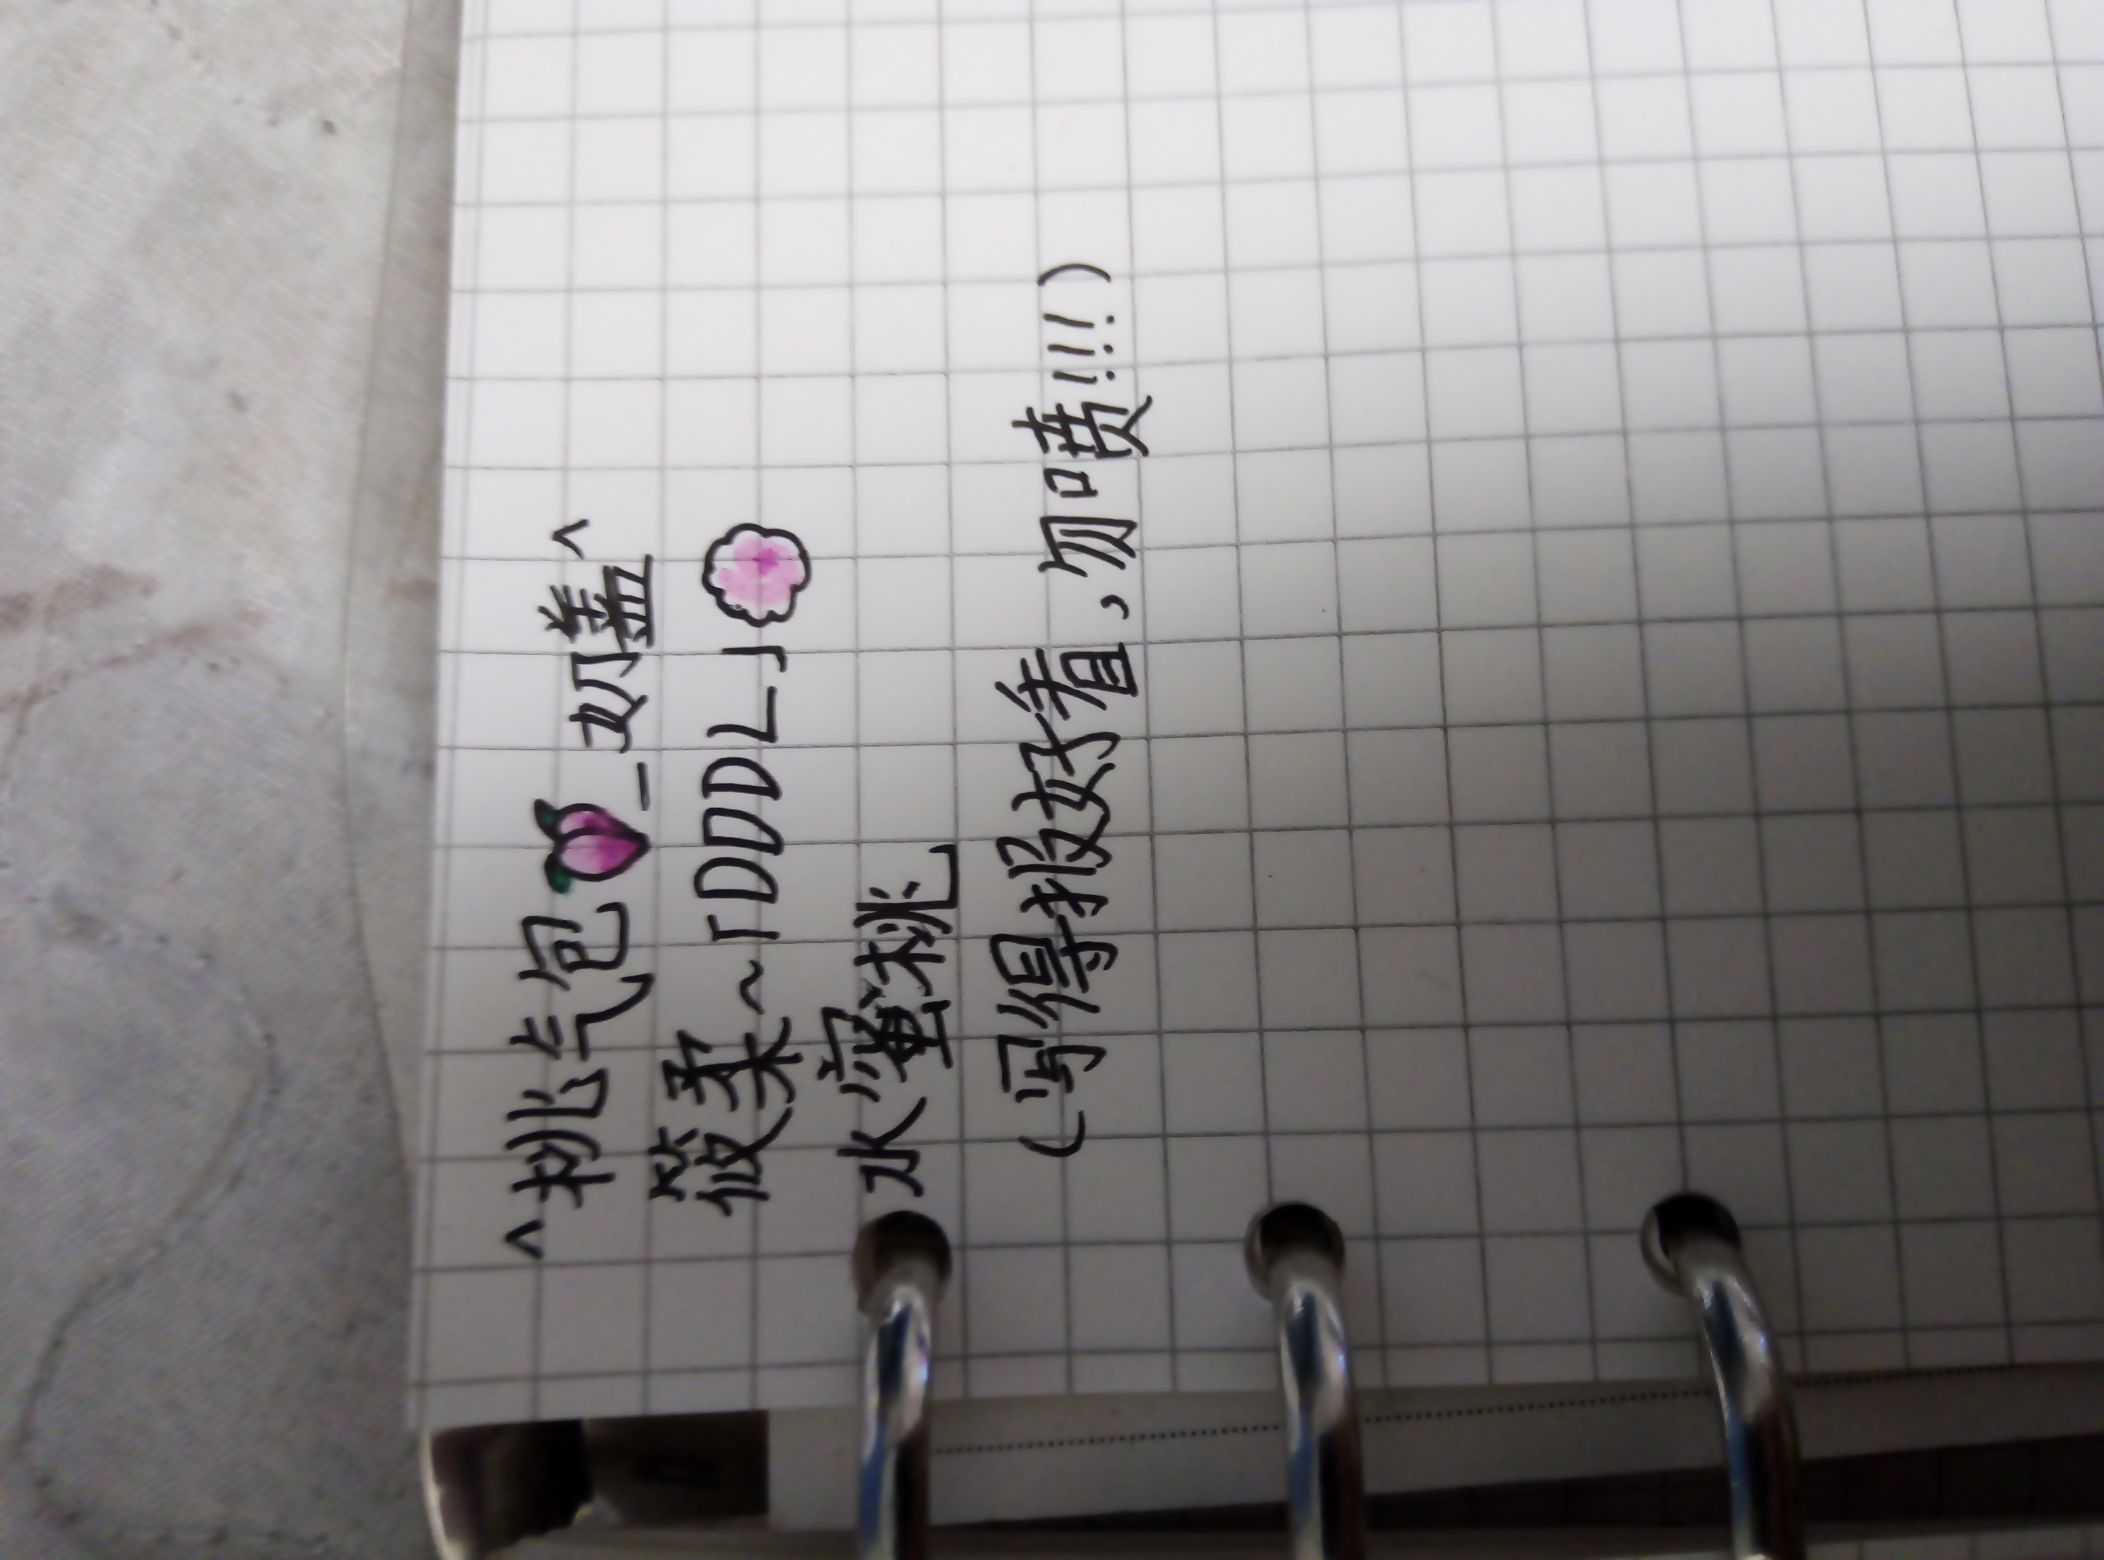 ^桃气包_奶盖^
筱柔~「DDDL」
水蜜桃
(写得报好看,勿喷!!!)